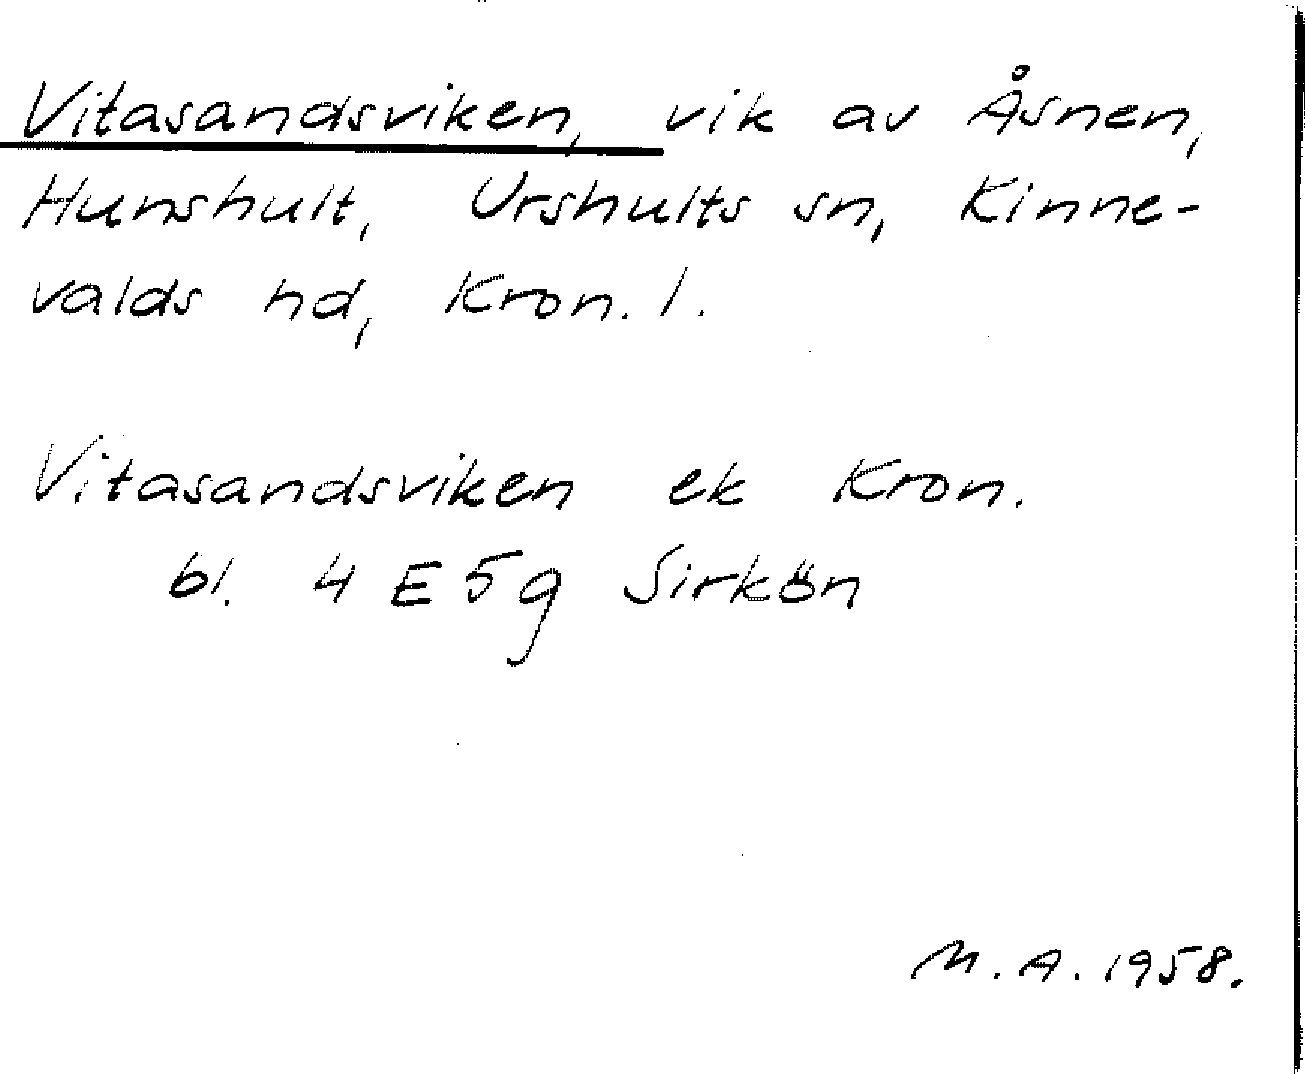 Vitasandsviken, vik av Åsnen,
Hunshult, Urshults sn, Kinne-
valds hd, Kron. l.
Vitasandsviken ek Kron.
bl. 4 E 5 g Sirkön
M. A. 1958.